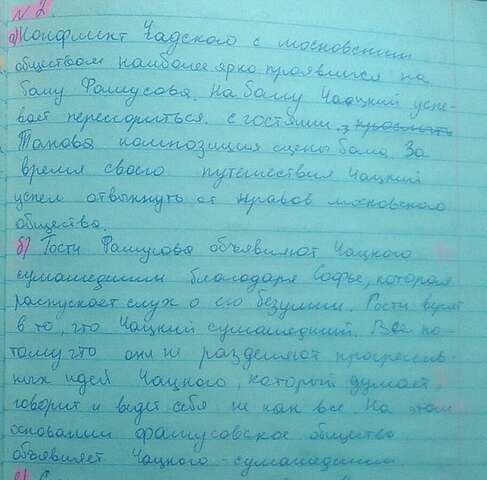 № 2
а) Конфликт Чадского с московским
обществом наиболее ярко проявился на
балу Фамусова. На балу Чацкий успе-
вает перессориться с гостями.
Такова композиция сцены бала. За
время своего путешествия Чацкий
успел отвыкнуть от нравов московского
общества.
б) Гости Фамусова объявляют Чацкого
сумашедшим благодаря Софье, которая
распускает слух о его безумии. Гости верят
в то, что Чацкий сумашедший. Все по-
тому что они не разделяют прогрессив-
ных идей Чацкого, который думает,
говорит и ведет себя не как все. На этом
основании фамусовское общество
объявляет Чацкого - сумашедшим.